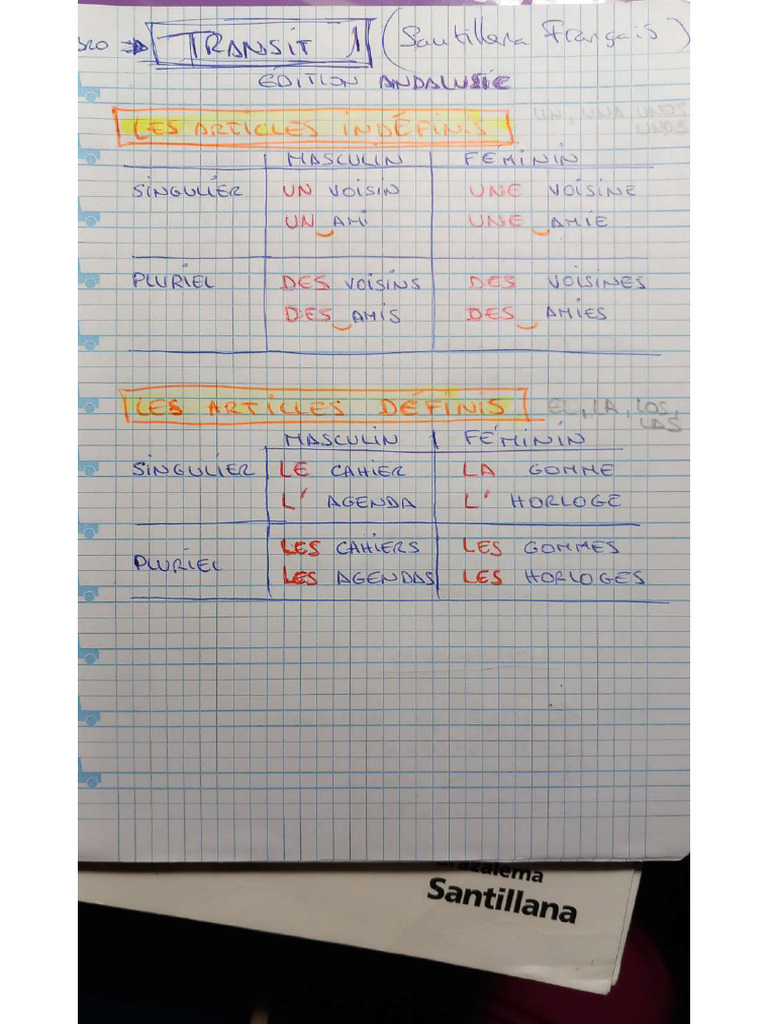 BRO ⇒ TRANSIT 1 (Santillana Français)
ÉDITION ANDALUSIE
LES ARTICLES INDÉFINIS UN, UNA UNOS
UNAS
MASCULIN FÉMININ
SINGULIER UN VOISIN UNE VOISINE
UN AMI UNE AMIE
PLURIEL DES VOISINS DES VOISINES
DES AMIS DES AMIES
LES ARTICLES DÉFINIS EL, LA, LOS,
LAS
MASCULIN FÉMININ
SINGULIER LE CAHIER LA GOMME
L' AGENDA L' HORLOGE
PLURIEL LES CAHIERS LES GOMMES
LES AGENDAS LES HORLOGES
Grazalema
Santillana